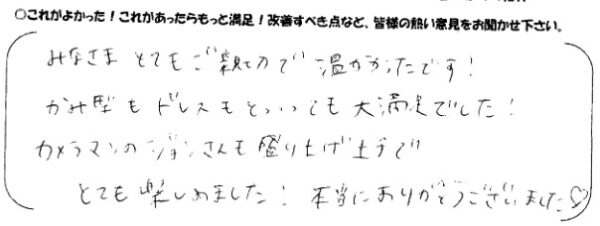 ○これがよかった!これがあったらもっと満足!改善すべき点など、皆様の熱い意見をお聞かせ下さい。
みなさま とてもご親切で 温かかったです!
かみ型も ドレスもとっても大満足でした!
カメラマンの ジョンさんも盛り上げ上手で
とても楽しめました! 本当にありがとうございました♡